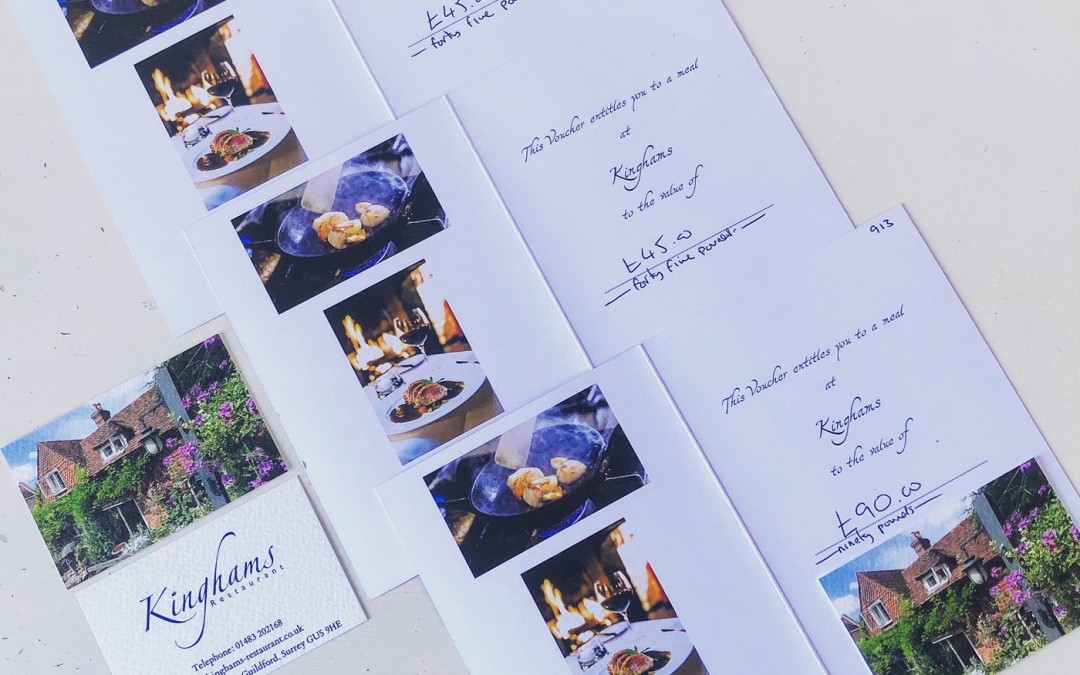 £45.00
forty five pounds
This Voucher entitles you to a meal
at
Kinghams
to the value of
£45.00
forty five pounds
913
This Voucher entitles you to a meal
at
Kinghams
to the value of
£90.00
ninety pounds
Kinghams
Restaurant
Telephone: 01483 202168
kinghams-restaurant.co.uk
Guildford, Surrey GU5 9HE